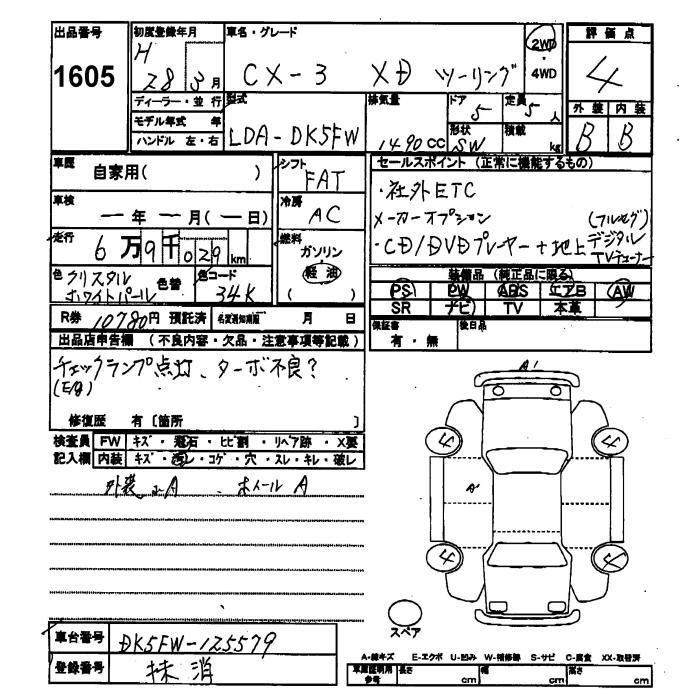 出品番号
1605
初度登録年月
H
28 3月
ディーラー・並 行
モデル年式 年
ハンドル 左・右
車名・グレード
CX-3 XD ツーリング
2WD
・
4WD
評 価 点
4
外 装 内 装
B B
型式
LDA-DK5FW
排気量
1490 CC
ドア
5
定員
5人
形状
SW
積載
kg
車歴
自家用( )
車検
ー年ー月(ー日)
走行
6万9千029km
色
クリスタル
ホワイトパール
色替
色コード
34K
シフト
FAT
冷房
AC
燃料
ガソリン
軽 油
( )
セールスポイント (正常に機能するもの)
・社外ETC
メーカーオプション (フルセグ)
・CD/DVDプレーヤー+地上デジタル
TVチューナー
装備品 (純正品に限る)
PS PW ABS エアB AW
SR ナビ TV 本革
R券 10780円 預託済 名変通知期限 月 日
保証書
有・無
後日品
出品店申告欄 (不良内容・欠品・注意事項等記載)
チェックランプ点灯、ターボ不良?
(E/g)
修復歴 有〔箇所 〕
検査員 FW キズ・飛石・ヒビ割・リペア跡・X要
記入欄 内装 キズ・汚レ・コゲ・穴・スレ・キレ・破レ
外装 A ホイール A
A'
4 4
A'
4 4
スペア
車台番号 DK5FW-125579
登録番号 抹 消
A-線キズ E-エクボ U-凹み W-補修跡 S-サビ C-腐食 XX-取替済
車庫証明用
参考
長さ cm
幅 cm
高さ cm